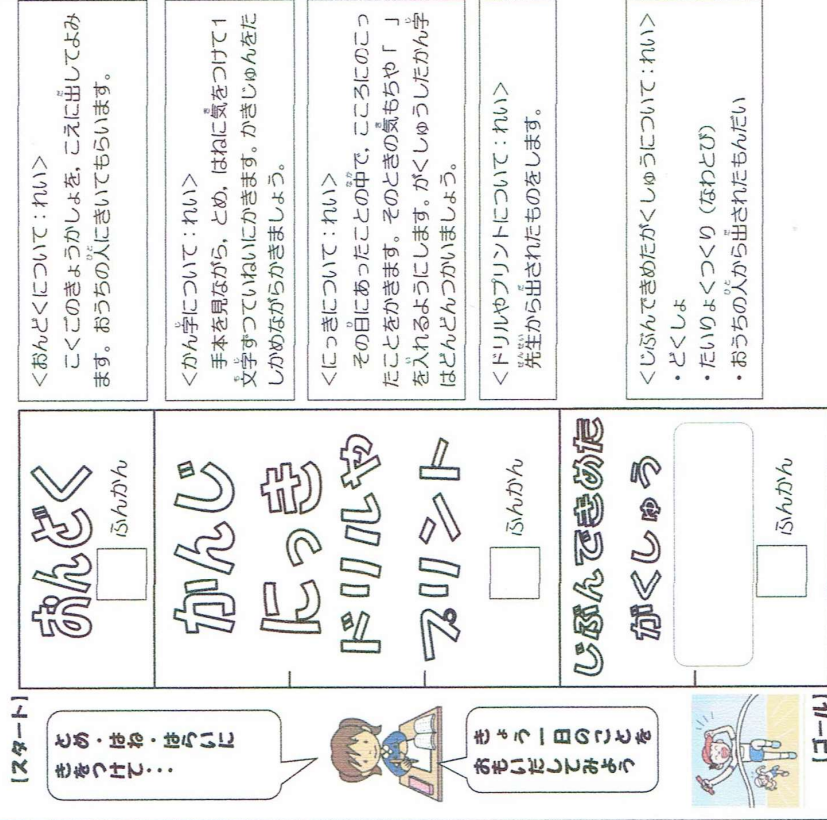 【スタート】
とめ・はね・はらいに
きをつけて・・・
きょう一日のことを
おもいだしてみよう
【ゴール】
おんどく
ふんかん
かんじ
にっき
ドリルや
プリント
ふんかん
じぶんできめた
がくしゅう
ふんかん
<おんどくについて：れい>
こくごのきょうかしょを，こえに出してよみ
ます。おうちの人にきいてもらいます。
<かん字について：れい>
手本を見ながら，とめ，はねに気をつけて１
文字ずつていねいにかきます。かきじゅんをた
しかめながらかきましょう。
<にっきについて：れい>
その日にあったことの中で，こころにのこっ
たことをかきます。そのときの気もちや「　」
を入れるようにします。がくしゅうしたかん字
はどんどんつかいましょう。
<ドリルやプリントについて：れい>
先生から出されたものをします。
<じぶんできめたがくしゅうについて：れい>
・どくしょ
・たいりょくつくり（なわとび）
・おうちの人から出されたもんだい